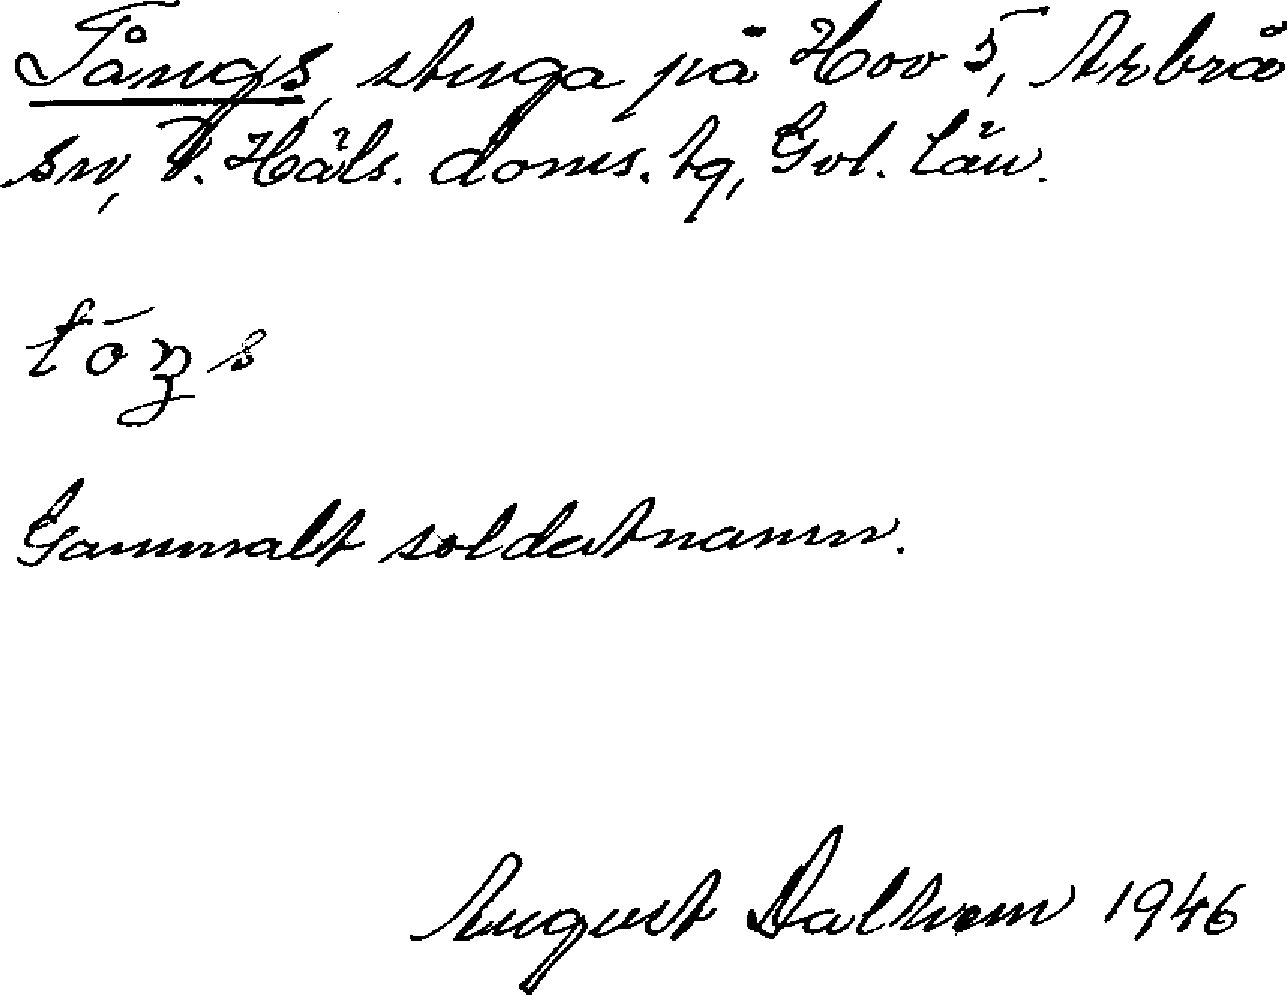 Tångs, stuga på Hov 5, Arbrå
sn, V. Häls. doms. tg, Gvl. län.
tōŋs
Gammalt soldatnamn.
August Dalhem 1946